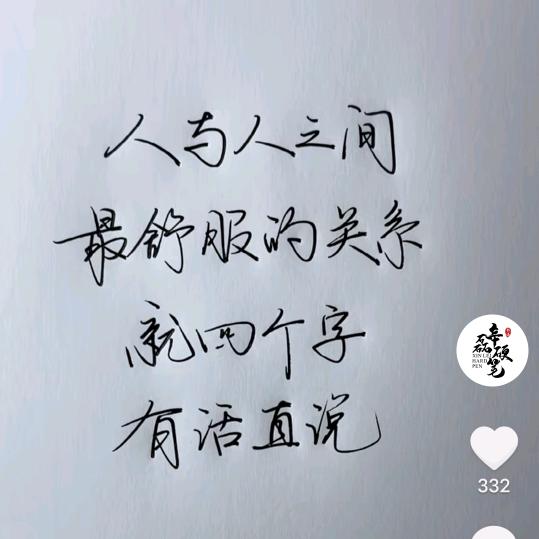 人与人之间
最舒服的关系
就四个字
有话直说
辛磊硬笔
XIN LEI
HARD
PEN
332